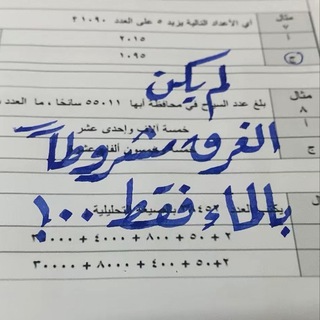 مثال
٧
أي الأعداد التالية يزيد ٥ على العدد ٣١٠٩٠
أ
٢٠١٥
ج
١٠٩٥
لم يكن
مثال
٨
بلغ عدد السياح في محافظة أبها ٥٥٠١١ سائحًا ، ما العدد
أ
خمسة آلاف وإحدى عشر
ج
الغرق مشروطاً
بالماء فقط ..!
٢+ ٥٠ + ٨٠٠ + ٤٠٠٠ +
٢+٥٠ + ٤٠٠ + ٨٠٠٠ + ٣٠٠٠٠